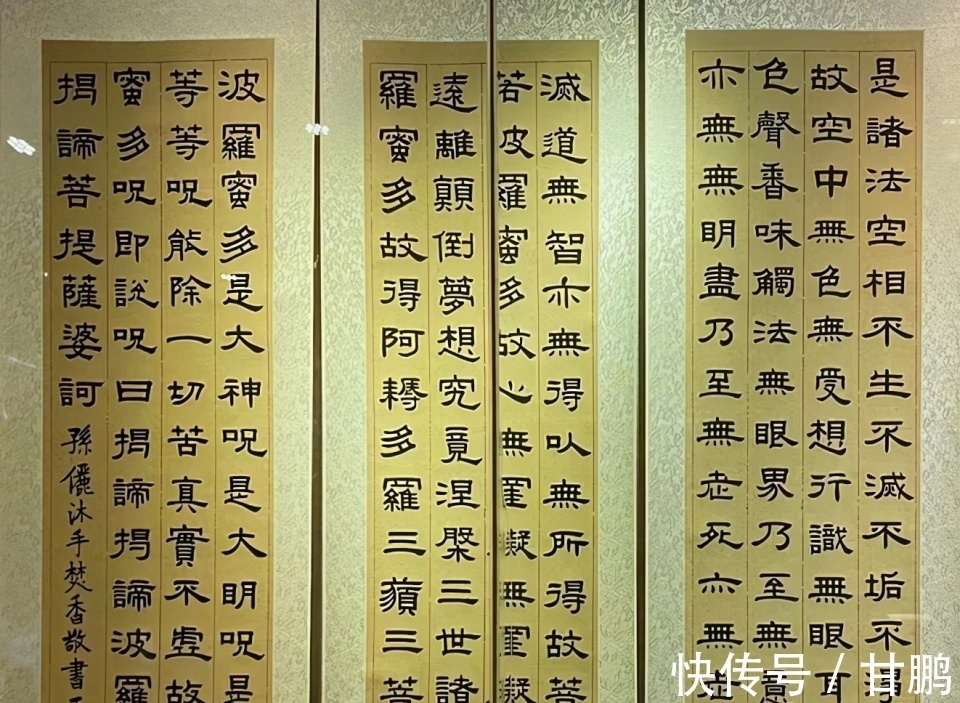 是諸法空相不生不滅不垢不
故空中無色無受想行識無眼耳
色聲香味觸法無眼界乃至無意
亦無無明盡乃至無老死亦無老
滅道無智亦無得以無所得故菩
若波羅蜜多故心無罣礙無罣礙
遠離顛倒夢想究竟涅槃三世諸
羅蜜多故得阿耨多羅三藐三菩
波羅蜜多是大神呪是大明呪是
等等呪能除一切苦真實不虛故
蜜多呪即說呪曰揭諦揭諦波羅
揭諦菩提薩婆訶
孫儷沐手焚香敬書
快传号 / 甘鹏